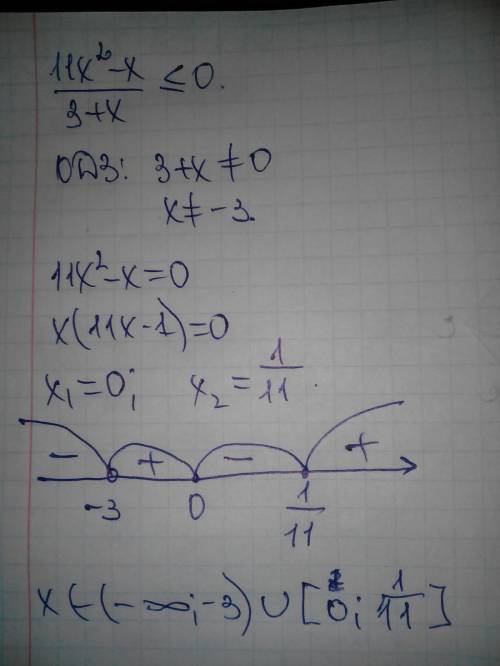 (11x²-x)/(3+x) ≤ 0.
ОДЗ: 3+x ≠ 0
x ≠ -3.
11x²-x=0
x(11x-1)=0
x₁=0; x₂=1/11.
- + - +
-3 0 1/11
x∈(-∞;-3)∪[0; 1/11]